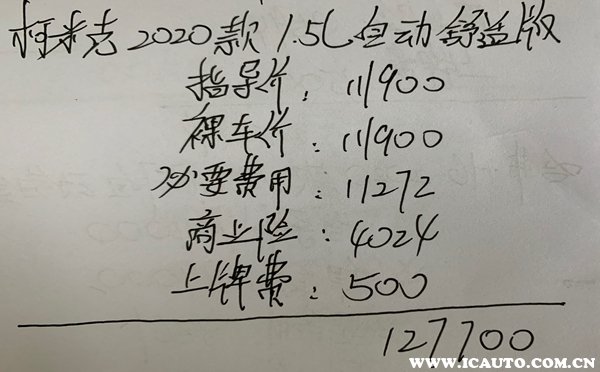 柯米克2020款1.5L自动舒适版
指导价：111900
裸车价：111900
必要费用：11272
商业险：4024
上牌费：500
127700
WWW.ICAUTO.COM.CN